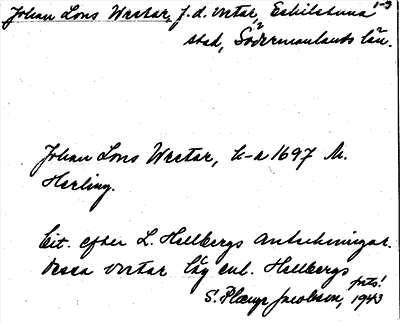 Johan Lons Wretar, f.d. vretar, Eskilstuna 1-3
stad, Södermanlands län.
Johan Lons Wretar, h-a 1697 M.
Herling.
Cit. efter L. Hellbergs anteckningar.
Dessa vretar låg enl. Hellbergs
prts!
S. Plœup Jacobsen, 1943